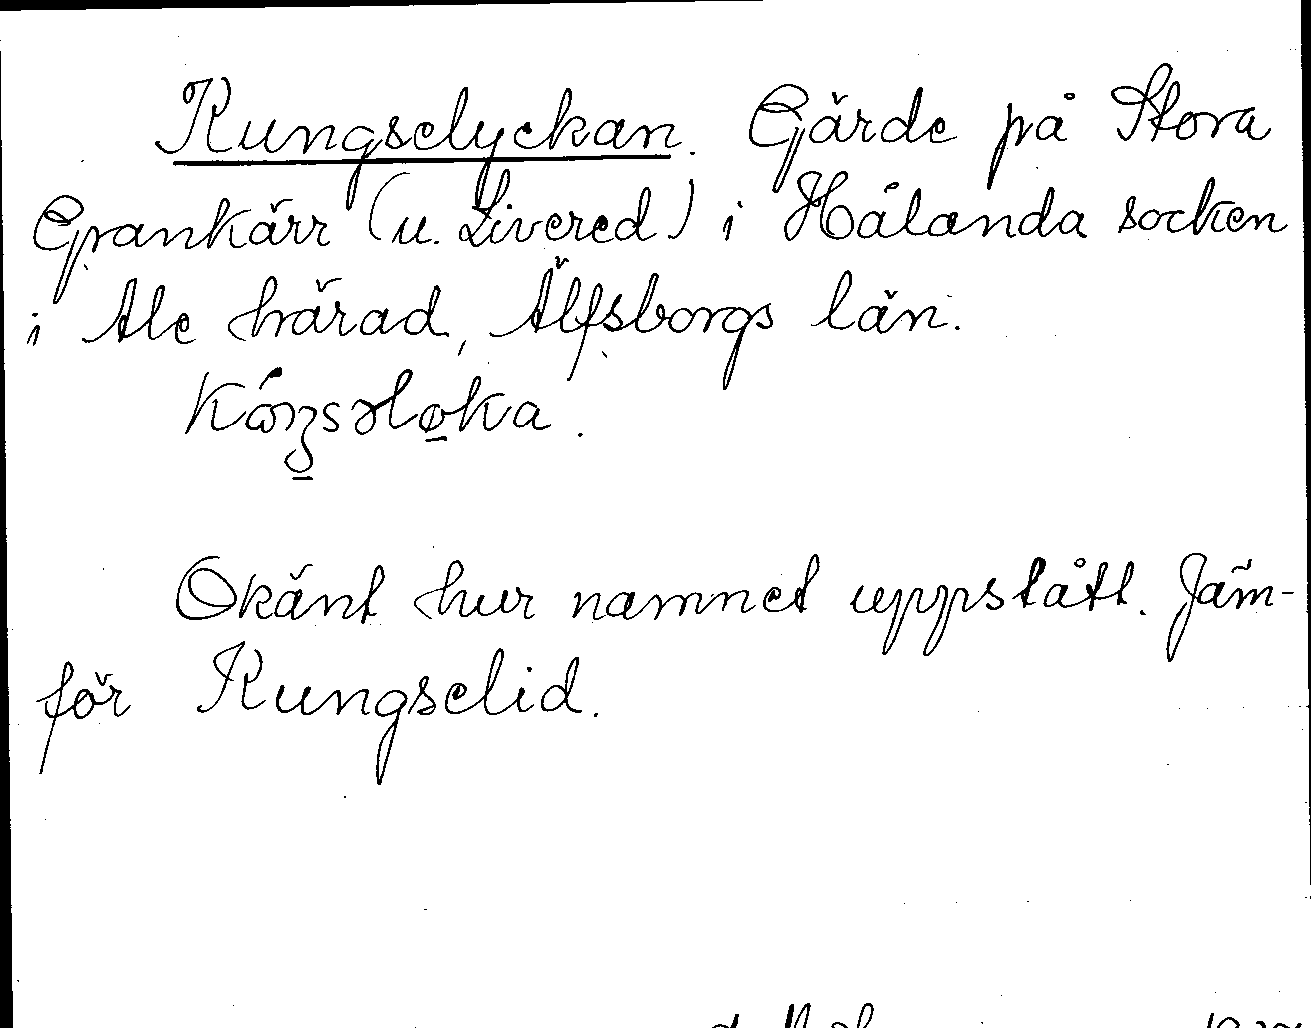 Kungselyckan. Gärde på Stora
Grankärr (u. Livered) i Hålanda socken
i Ale härad, Älfsborgs län.
Okänt hur namnet uppstått. Jäm-
för Kungselid.